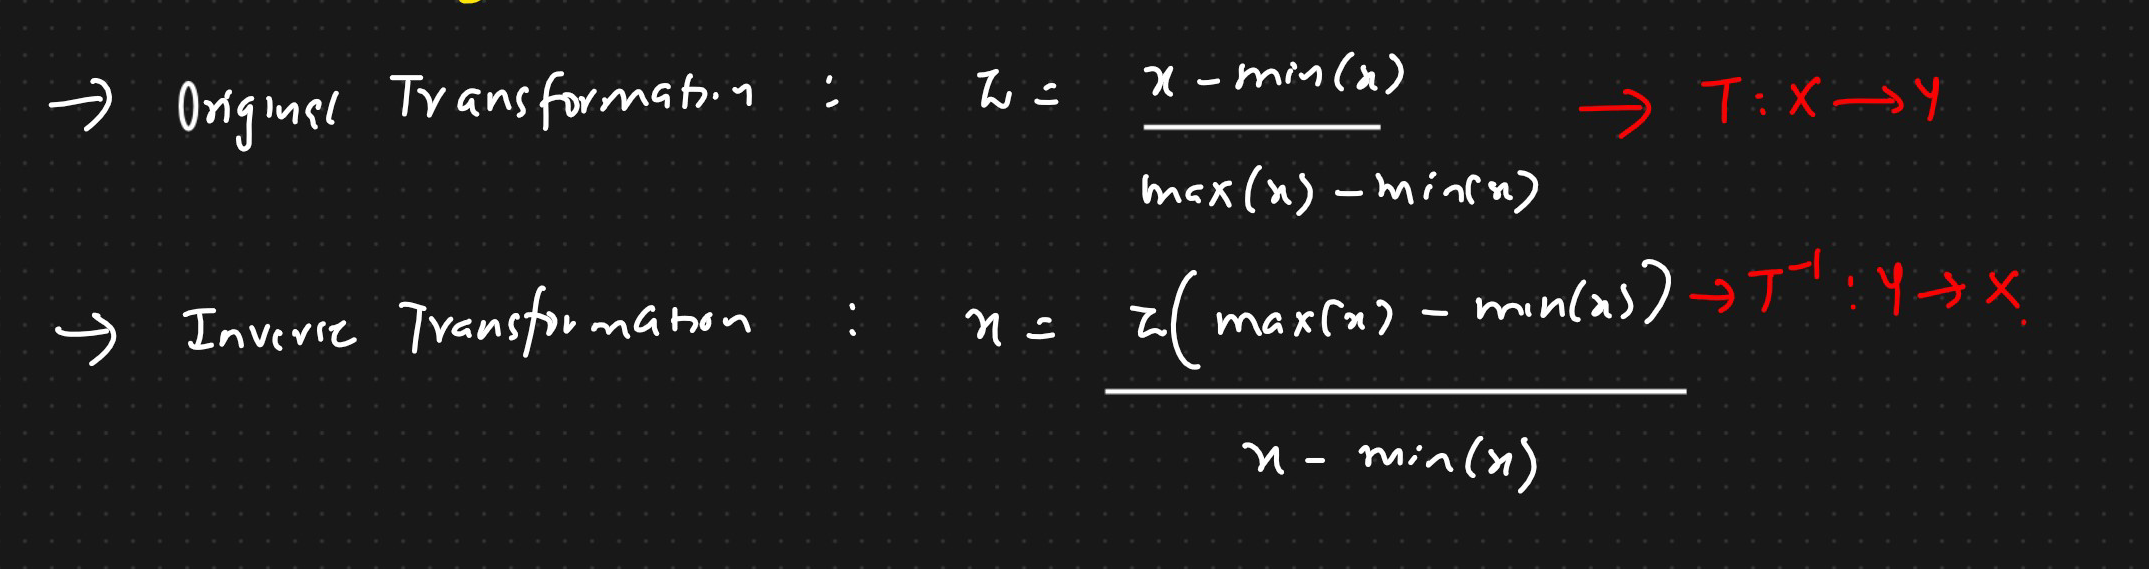 → Original Transformation : z = x - min(x) / max(x) - min(x) → T : X → Y
→ Inverse Transformation : x = z(max(x) - min(x)) / x - min(x) → T⁻¹ : Y → X.